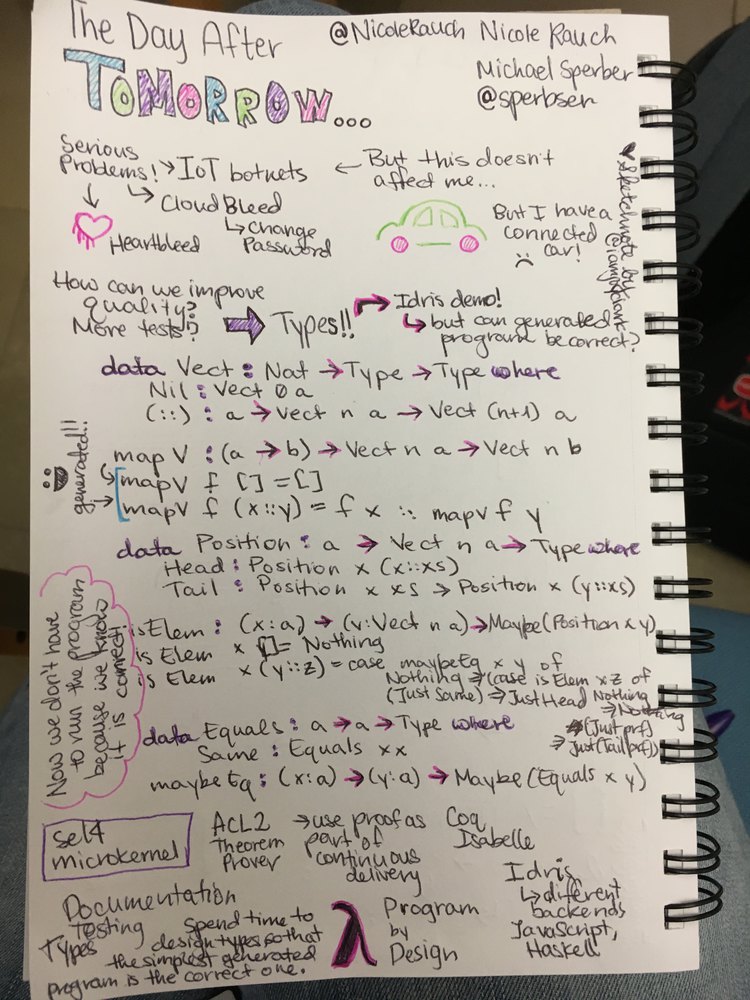 The Day After
@NicoleRauch Nicole Rauch
TOMORROW...
Michael Sperber
@sperbser
Serious
Problems! → IoT botnets
← But this doesn't
affect me...
↳ CloudBleed
↳ Change
Password
Heartbleed
But I have a
connected
car!
♥ Sketchnote by
How can we improve
quality?
More tests?
→ Types!!
Idris demo!
↳ but can generated
program be correct?
data Vect : Nat → Type → Type where
Nil : Vect 0 a
(::) : a → Vect n a → Vect (n+1) a
generated!!
mapV : (a → b) → Vect n a → Vect n b
mapV f [] = []
mapV f (x::y) = f x :: mapV f y
data Position : a → Vect n a → Type where
Head : Position x (x::xs)
Tail : Position x xs → Position x (y::xs)
Now we don't have
to run the program
because we know
it is correct!
isElem : (x:a) → (v:Vect n a) → Maybe (Position x y)
isElem x [] = Nothing
isElem x (y::z) = case maybeEq x y of
Nothing ⇒ (case isElem x z of
(Just Same) ⇒ Just Head Nothing
⇒ Nothing
(Just prf)
⇒ Just (Tail prf))
data Equals : a → a → Type where
Same : Equals x x
maybeEq : (x:a) → (y:a) → Maybe (Equals x y)
sel4
microkernel
ACL2
Theorem
Prover
→ use proof as
part of
continuous
delivery
Coq
Isabelle
Idris
↳ different
backends
JavaScript,
Haskell
Documentation
Testing
Types
Spend time to
design types so that
the simplest generated
program is the correct one.
λ Program
by
Design